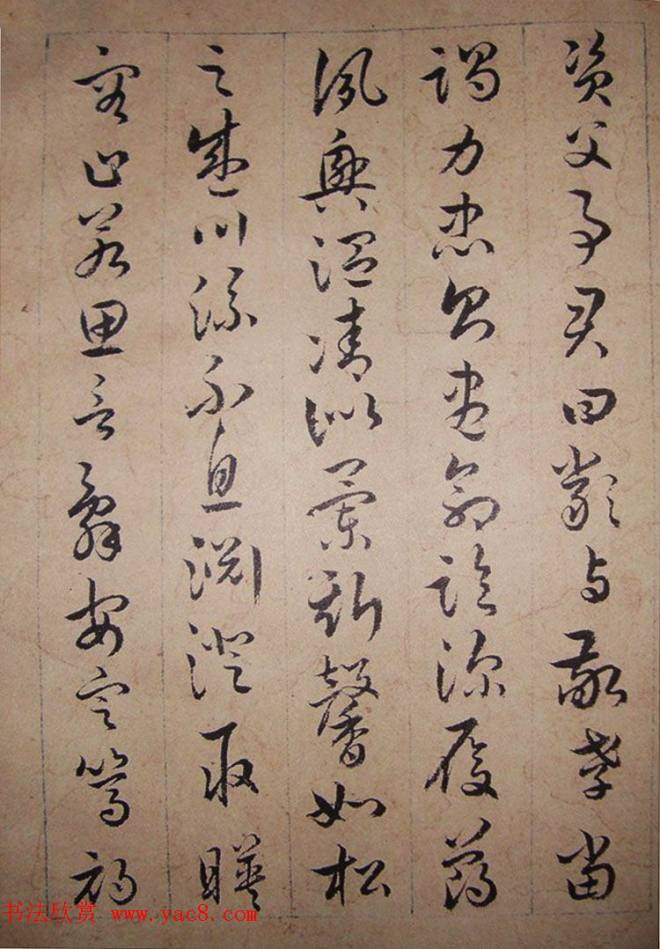 资父事君曰严与敬孝当
竭力忠则尽命临深履薄
夙兴温凊似兰斯馨如松
之盛川流不息渊澄取暎
容止若思言辞安定笃初
书法欣赏 www.yac8.com